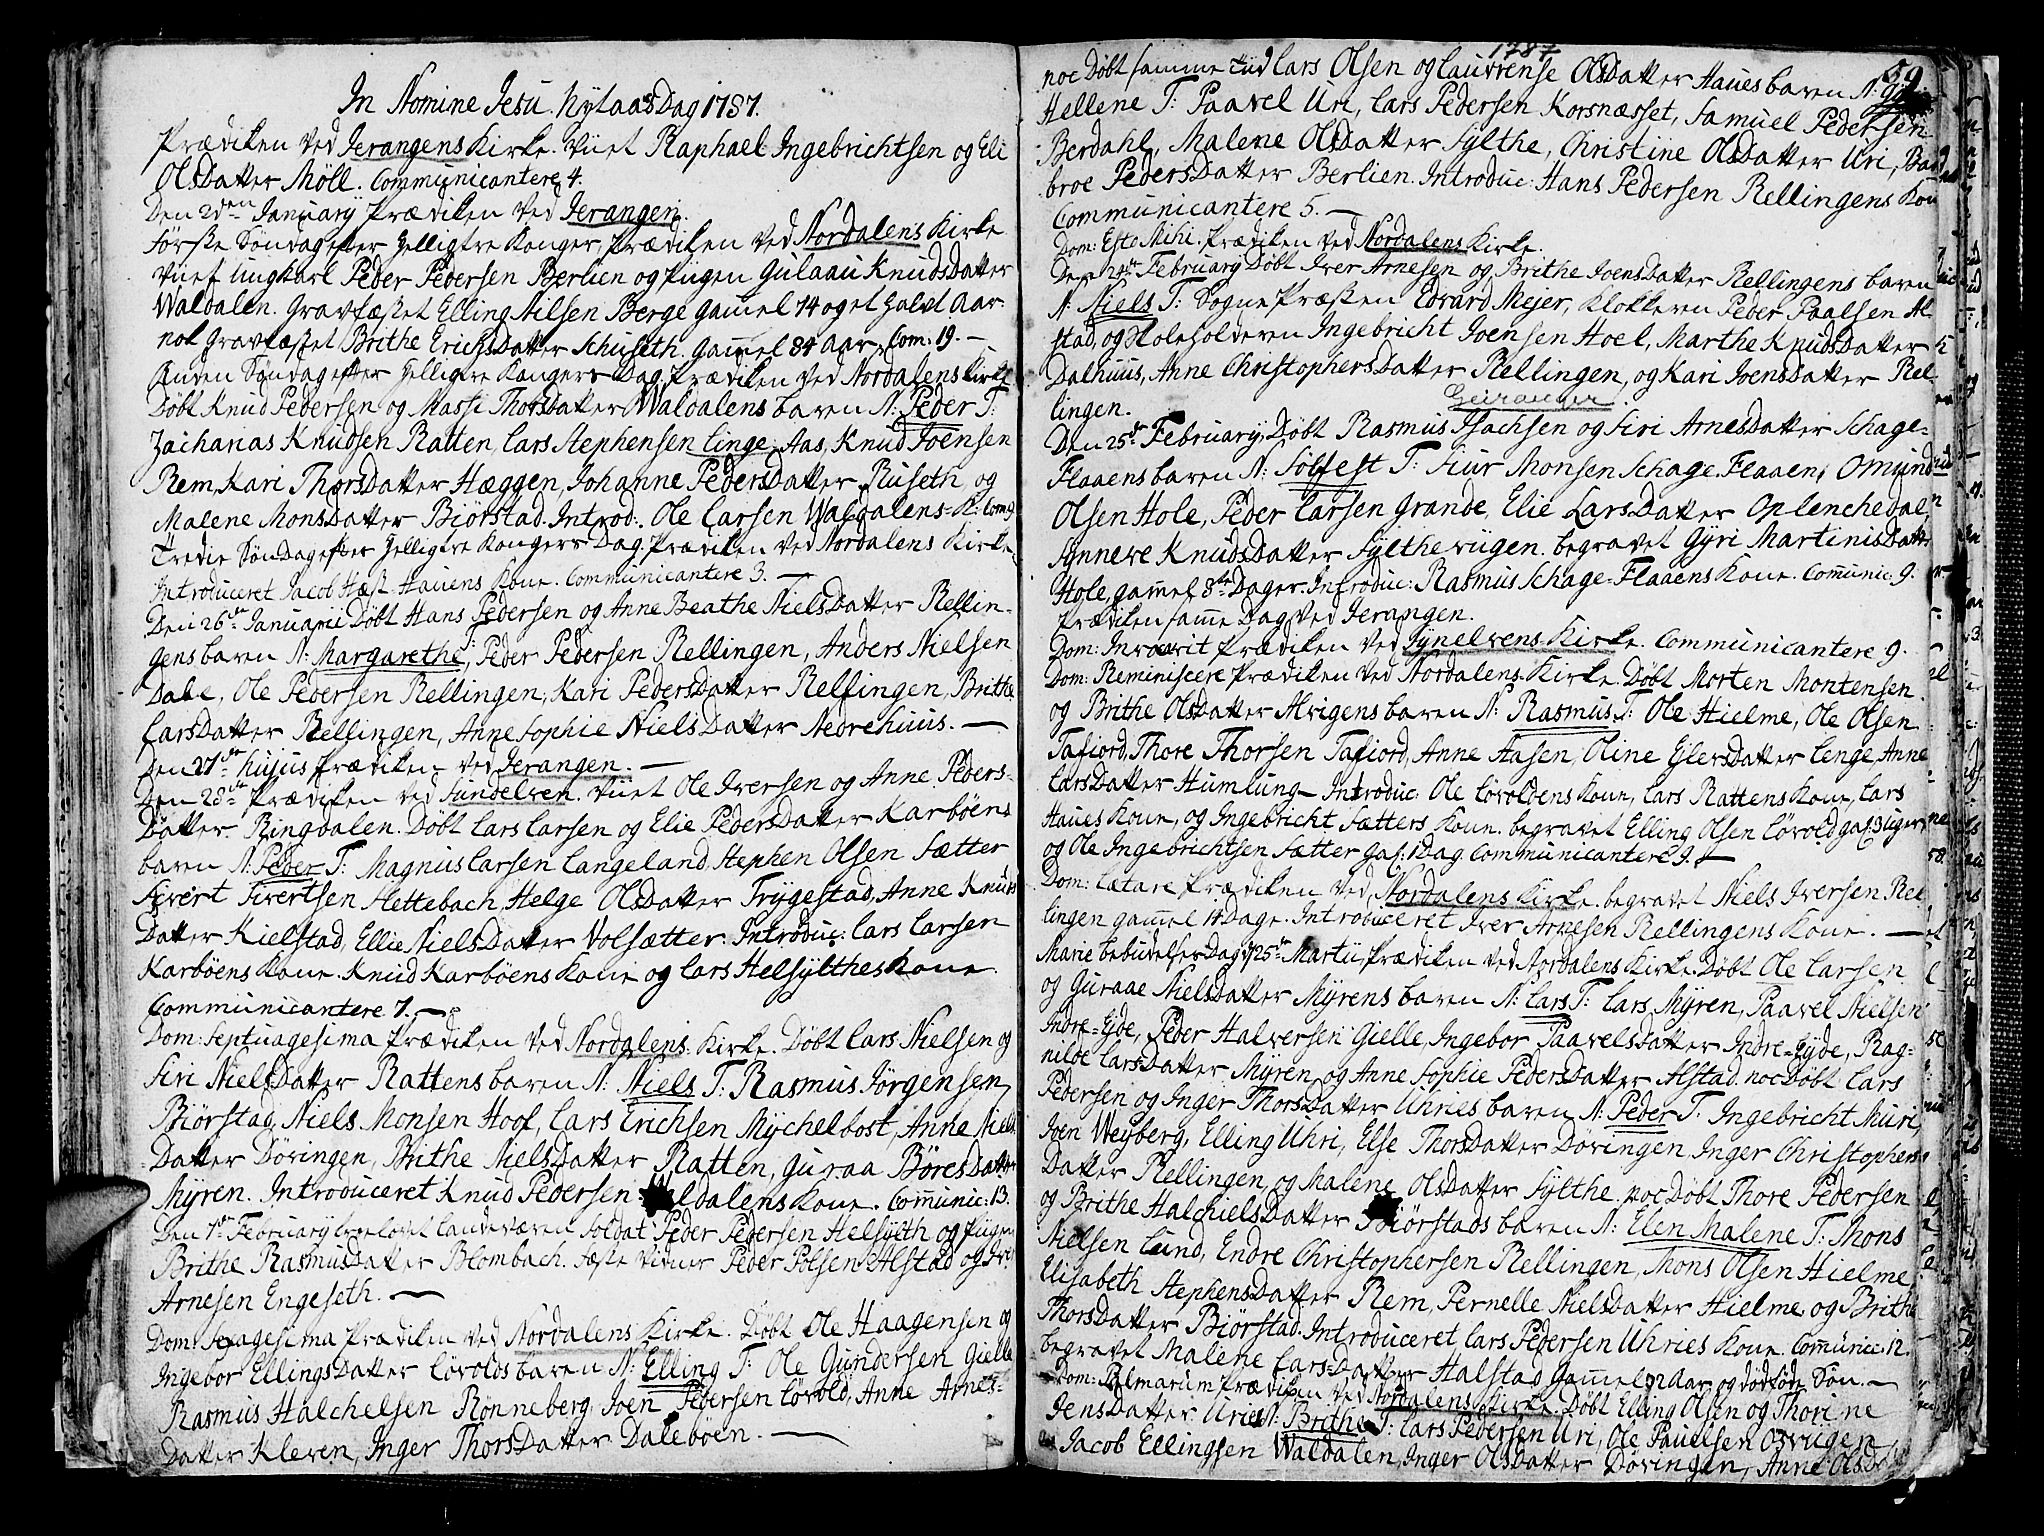 In Nomine Jesu. Nytaars Dag 1787.
Prædiken ved Jerangens Kirke. Viiet Raphael Ingebrichtsen og Eli
OlsDatter Möll. Communicantere 4.
Den 2den January Prædiken ved Jerangen.
Förste Söndag efter Helligtre Konger, Prædiken ved Nordalens Kirke
Viiet Ungkarl Peder Pedersen Berlien og Pigen Gulaau KnudsDatter
Waldalen. Gravfæstet Elling Nilsen Berge gamel 74 og et halvt Aar.
nok Gravfæstet Brithe ErichsDatter Schuseth. gamel 84 Aar. Com: 19. —
Anden Söndag efter Helligtre Kongers Dag, Prædiken ved Nordalens Kirke
Döbt Knud Pedersen og Massi ThorsDatter Waldalens baren N: Peder T:
Zacharias Knudsen Ratten, Lars Stephensen Linge, Aas, Knud Joensen
Rem, Kari ThorsDatter Hæggen, Johanne PedersDatter Ruseth, og
Malene MonsDatter Biörstad. Introd: Ole Larsen Waldalens K: Com 9
Tredie Söndag efter Helligtre Kongers Dag. Prædiken ved Nordalens Kirke
Introduceret Jacob Hæst Hauens Kone. Communicantere 3. —
Den 26de Januarii Döbt Hans Pedersen og Anne Beathe NielsDatter Relling-
gens baren N: Margarethe, T: Peder Pedersen Rellingen, Anders Nielsen
Dale, Ole Pedersen Rellingen, Kari PedersDatter Rellingen, Brithe
LarsDatter Rellingen, Anne Sophie NielsDatter Nedrehuus. —
Den 27de hujus Prædiken ved Jerangen. —
Den 28de Prædiken ved Sundelven. Viiet Ole Iversen og Anne Peders-
Datter Ringdalen. Döbt Lars Larsen og Elie PedersDatter Karböens
baren N: Peder T: Magnus Larsen Langeland, Stephen Olsen Sætter
Sivert Sivertsen Slettebach, Helge OlsDatter Trygestad, Anne Knuds
Datter Kielstad, Ellie NielsDatter Volsætter: Introduc: Lars Larsen
Karböens Kone. Knud Karböens Kone og Lars Helsylthes Kone
Communicantere 7. —
Dom: Septuagesima Prædiken ved Nordalens Kirke. Döbt Lars Nielsen og
Siri NielsDatter Rattens baren N: Niels T: Rasmus Jörgensen
Biörstad, Niels Monsen Hoof, Lars Erichsen Mychelbost, Anne Niels
Datter Döringen, Brithe NielsDatter Ratten, Guraa BöresDatter
Myren. Introduceret Knud Pedersen Waldalens Kone. Communic: 13.
Den 7de February trolovet Landeværen Soldat Peder Pedersen Helsylth og Pigen
Brithe RasmusDatter Blombach. Fæste Vidner Peder Polsen Alstad og Iver
Arnesen Engeseth. —
Dom: Sexagesima Prædiken ved Nordalens Kirke. Döbt Ole Haagensen og
Ingebor EllingsDatter Lövolds baren N: Elling T: Ole Gundersen Gielle
Rasmus Halchelsen Rönneberg, Joen Pedersen Lövold, Anne Arnes-
Datter Kleven, Inger ThorsDatter Daleböen. —
1787
59
noc Döbt samme tiid Lars Olsen og Laurense OlsDatter Haues baren N:
Hellene T: Paavel Uri, Lars Pedersen Korsnæsset, Samuel Pedersen
Berdahl, Malene OlsDatter Sylthe, Christine OlsDatter Uri, Bar
broe PedersDatter Berlien. Introduc: Hans Pedersen Rellingens Kone
Communicantere 5. —
Dom: Esto Mihi. Prædiken ved Nordalens Kirke.
Den 21de February Döbt Iver Arnesen og Brithe JoensDatter Rellingens baren
N: Niels T: Sogne Præsten Edvard Mejer, Klokkeren Peder Paalsen Al
stad, og Skoleholderen Ingebricht Joensen Hoel, Marthe KnudsDatter
Dalhuus, Anne ChristophersDatter Rellingen, og Kari JoensDatter Rel-
lingen.
Geiranger
Den 25de February Döbt Rasmus Isachsen og Siri ArnesDatter Schage-
Flaaens baren N: Sölfest T: Siur Monsen Schage-Flaaen, Omund
Olsen Hole, Peder Larsen Grande, Elie LarsDatter Oplenchedal
Synneve KnudsDatter Sylthevigen. begravet Gyri MartinisDatter
Hole, gammel 8te Dager. Introduc: Rasmus Schage-Flaaens Kone. Communic: 9.
Prædiken samme Dag ved Jerangen.
Dom: Invocavit Prædiken ved Synelvens Kirke. Communicantere 9.
Dom: Reminiscere Prædiken ved Nordalens Kirke. Döbt Morten Mortensen
og Brithe OlsDatter Alvigens baren N: Rasmus T: Ole Hielme, Ole Olsen
Tafiord, Thore Thorsen Tafiord, Anne Aasen, Oline EjlersDatter Linge, Anne
LarsDatter Humlung — Introduc: Ole Lövoldens Kone, Lars Rattens Kone, Lars
Haues Kone, og Ingebricht Sætters Kone. begravet Elling Olsen Lövold ga: 3 Uger,
og Ole Ingebrichtsen Sætter ga: 1 Dag. Communicantere 9. —
Dom: Lætare Prædiken ved Nordalens Kirke. begravet Niels Iversen Rel
lingen gammel 14 Dage. Introduceret Iver Arnesen Rellingens Kone. —
Marie bebudelses Dag d 25de Martii, Prædiken ved Nordalens Kirke. Döbt Ole Larsen
og Guraae NielsDatter Myrens baren N: Lars T: Lars Myren, Paavel Nielsen
Indre-Eyde, Peder Halversen Gielle, Ingebor PaavelsDatter Indre-Eyde, Rag-
nilde LarsDatter Myren, og Anne Sophie PedersDatter Alstad. noc Döbt Lars
Pedersen og Inger ThorsDatter Uhries baren N: Peder T: Ingebricht Muri,
Joen Weyberg, Elling Uhri, Else ThorsDatter Döringen, Inger Christophers
Datter Rellingen, og Malene OlsDatter Sylthe. noc Döbt Thore Pedersen
og Brithe HalchielsDatter Biörstads baren N: Elen Malene T: Thons
Nielsen Lund, Endre Christophersen Rellingen, Mons Olsen Hielme,
Elisabeth StephensDatter Rem, Pernelle NielsDatter Hielme, og Brithe
ThorsDatter Biörstad. Introduceret Lars Pedersen Uhries Kone. Communic: 12.
begravet Malene LarsDatter Halstad Gammel 12 Aar og dödföd Sön. —
Dom: Palmarum Prædiken ved Nordalens Kirke. Döbt Elling Olsen og Thorine
JensDatter Uries N: Brithe T: Lars Pedersen Uri, Ole Pauelsen Osvigen
Jacob Ellingsen Waldalen, Inger OlsDatter Döringen, Anne OlsD